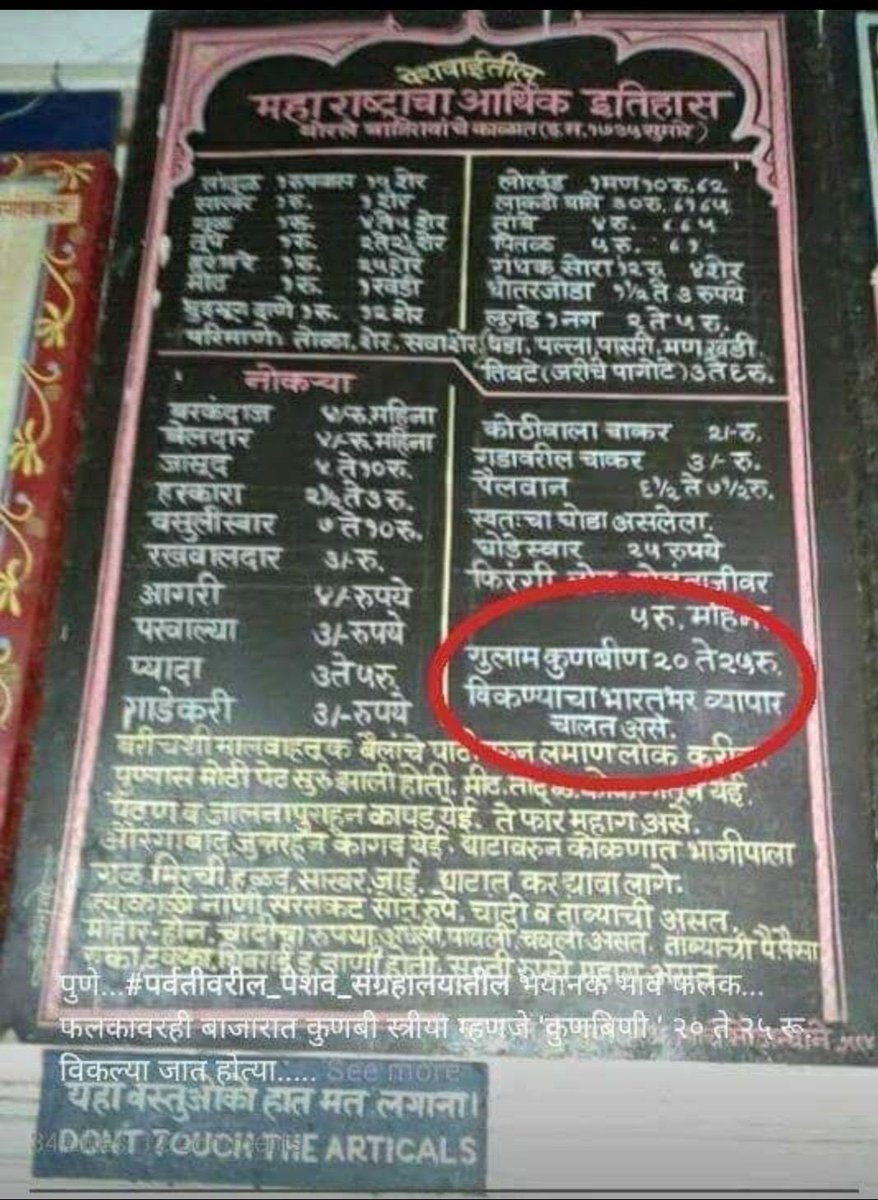 पेशवाईतील
महाराष्ट्राचा आर्थिक इतिहास
थोरले बाजिरावांचे काळात (इ.स.१७३५ सुमारे)
तांदूळ १ रुपयास १५ शेर
साखर १रु. १ शेर
गूळ १रु. ४ ते ५ शेर
तूप १रु. २ ते २॥ शेर
१रु. २५ शेर
मीठ १रु. १ खंडी
दाणे १रु. १२ शेर
परिमाणे: तोळा, शेर, सवाशेर, धडा, पल्ला, पासरी, मण, खंडी.
लोखंड १ मण १० रु. ८२
लाकडी वासे ३० रु.
तांबे ४ रु.
पितळ ५ रु.
गंधक सोरा १२ रु ४ शेर
धोतरजोडा १½ ते ३ रुपये
लुगडे १ नग २ ते ५ रु.
तिवटे (जरीचे पागोटे) ३ ते ६ रु.
नोकऱ्या
बरकंदाज ४/-रु. महिना
बेलदार ४/-रु. महिना
जासूद ५ ते १० रु.
हरकारा २½ ते ३ रु.
वसुलीस्वार ७ ते १० रु.
रखवालदार ३/-रु.
आगरी ४/-रुपये
पखाल्या ३/-रुपये
प्यादा ३ ते ५ रु
गाडेकरी ३/-रुपये
कोठीवाला चाकर २/-रु.
गडावरील चाकर ३/- रु.
पैलवान ६½ ते ७½ रु.
स्वतःचा घोडा असलेला
घोडेस्वार २५ रुपये
फिरंगी लोक
५ रु. महिना
गुलाम कुणबीण २० ते २५ रु.
विकण्याचा भारतभर व्यापार
चालत असे.
बरीचशी मालवाहतूक बैलांचे पाठीवरुन लमाण लोक करीत.
पुण्यास मोठी पेठ सुरु झाली होती. मीठ, तांदूळ, येई.
पैठण व जालनापुराहून कापड येई. ते फार महाग असे.
औरंगाबाद जुन्नरहून कागद येई. घाटावरुन कोकणात भाजीपाला
गूळ मिरची, हळद, साखर, जाई. घाटात कर द्यावा लागे.
त्याकाळी नाणी सरसकट सोने, रुपे, चांदी व तांब्याची असत.
मोहोर-होन, चांदीचा रुपया अधेली, पावली, चवली असत. तांब्याची पै, पैसा
नाणी होती.
पुणे...#पर्वतीवरील_पेशवे_संग्रहालयातील भयानक भाव फलक...
फलकावरही बाजारात कुणबी स्त्रीया म्हणजे 'कुणबिणी ' २० ते २५ रू
विकल्या जात होत्या..... See more
यहाँ वस्तुओंको हात मत लगाना।
DON'T TOUCH THE ARTICALS